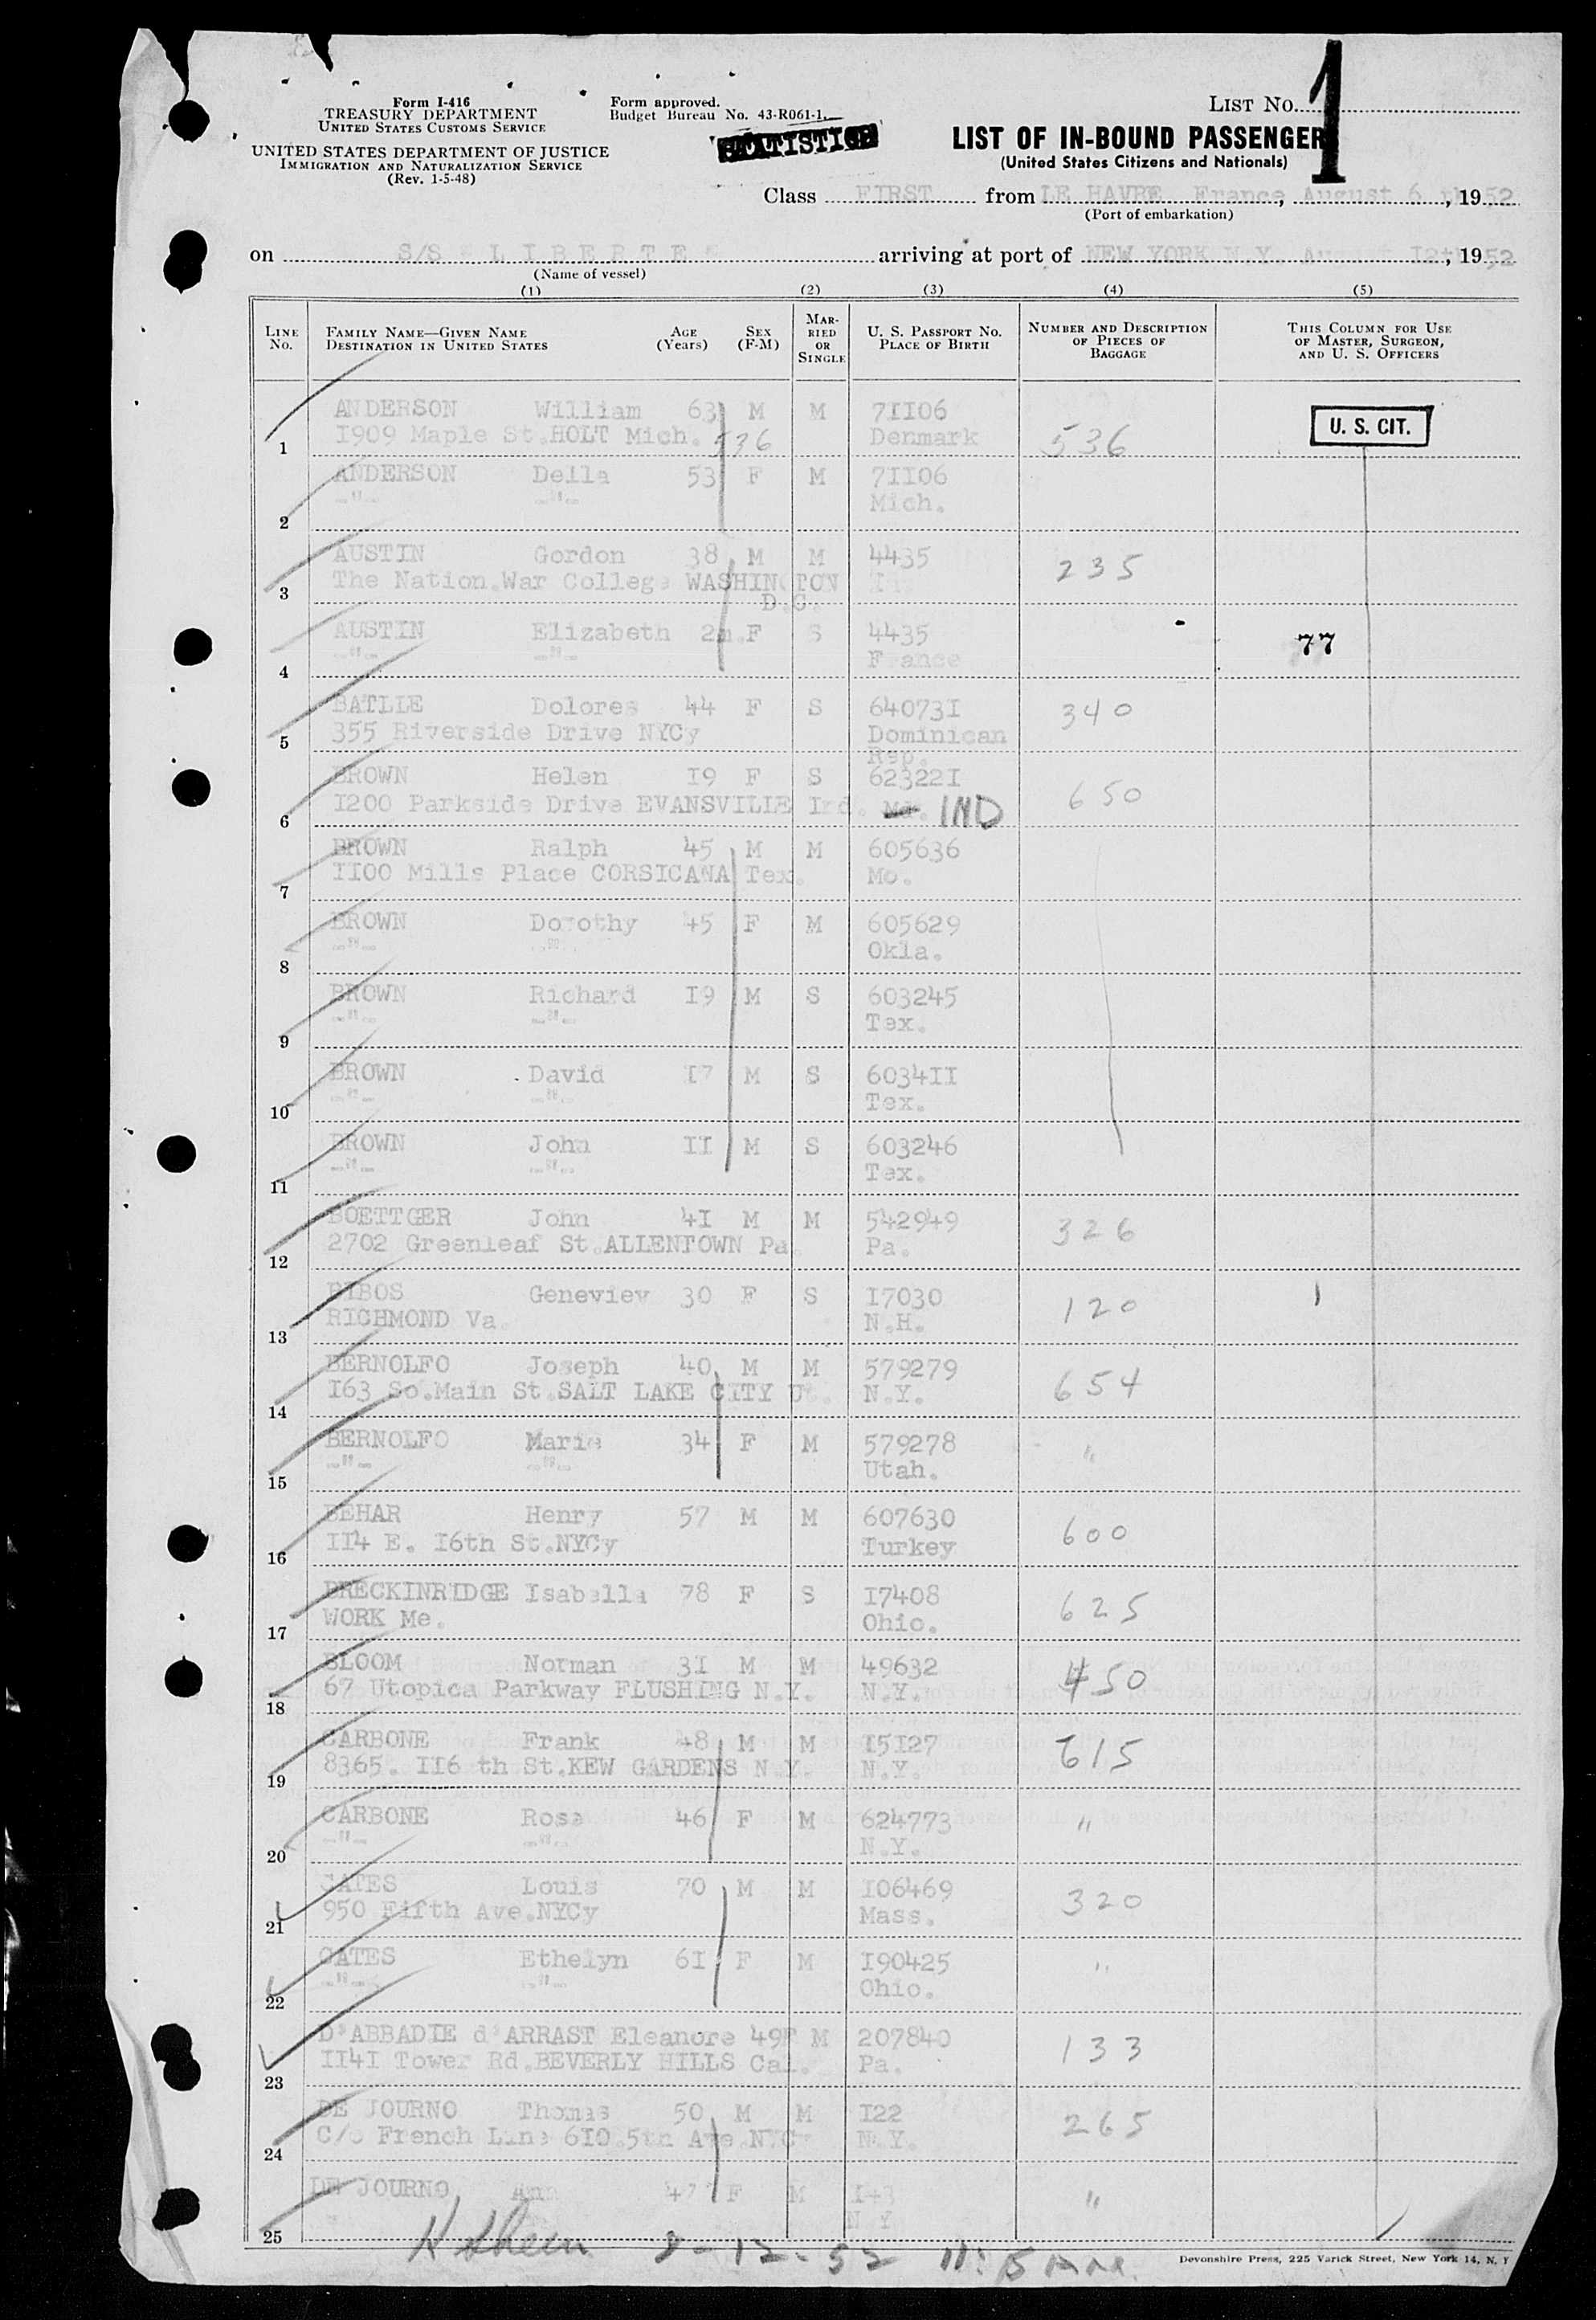 Form I-416
TREASURY DEPARTMENT
UNITED STATES CUSTOMS SERVICE
UNITED STATES DEPARTMENT OF JUSTICE
IMMIGRATION AND NATURALIZATION SERVICE
(Rev. 1-5-48)
Form approved.
Budget Bureau No. 43-R061-1.
LIST NO. 1
LIST OF IN-BOUND PASSENGER
(United States Citizens and Nationals)
Class FIRST from LE HAVRE France, August 6 th, 1952
(Port of embarkation)
on S/S " L I B E R T E " arriving at port of NEW YORK N.Y. August 12th, 1952
(Name of vessel)
(1) (2) (3) (4) (5)
LINE NO. FAMILY NAME—GIVEN NAME DESTINATION IN UNITED STATES AGE (Years) SEX (F-M) MARRIED OR SINGLE U. S. PASSPORT NO. PLACE OF BIRTH NUMBER AND DESCRIPTION OF PIECES OF BAGGAGE THIS COLUMN FOR USE OF MASTER, SURGEON, AND U. S. OFFICERS
ANDERSON William 63 M M 71106
1 1909 Maple St.HOLT Mich. 536 Denmark 536 U. S. CIT.
ANDERSON Della 53 F M 71106
2 -"- -"- Mich.
AUSTIN Gordon 38 M M 4435
3 The Nation.War College WASHINGTON 235
D.C.
AUSTIN Elizabeth 2m.F S 4435
4 -"- -"- France 77
BATLLE Dolores 44 F S 640731
5 355 Riverside Drive NYCy Dominican 340
Rep.
BROWN Helen 19 F S 623221
6 1200 Parkside Drive EVANSVILLE Ind. IND 650
BROWN Ralph 45 M M 605636
7 1100 Mills Place CORSICANA Tex. Mo.
BROWN Dorothy 45 F M 605629
8 -"- -"- Okla.
BROWN Richard 19 M S 603245
9 -"- -"- Tex.
BROWN David 17 M S 603411
10 -"- -"- Tex.
BROWN John 11 M S 603246
11 -"- -"- Tex.
BOETTGER John 41 M M 542949
12 2702 Greenleaf St.ALLENTOWN Pa. Pa. 326
BIBOS Geneviev 30 F S 17030
13 RICHMOND Va. N.H. 120
BERNOLFO Joseph 40 M M 579279
14 163 So.Main St.SALT LAKE CITY Ut. N.Y. 654
BERNOLFO Marie 34 F M 579278
15 -"- -"- Utah. "
BEHAR Henry 57 M M 607630
16 114 E. 16th St.NYCy Turkey 600
BRECKINRIDGE Isabella 78 F S 17408
17 WORK Me. Ohio. 625
BLOOM Norman 31 M M 49632
18 67 Utopica Parkway FLUSHING N.Y. N.Y. 450
CARBONE Frank 48 M M 15127
19 8365. 116 th St.KEW GARDENS N.Y. N.Y. 615
CARBONE Rose 46 F M 624773
20 -"- -"- N.Y. "
CATES Louis 70 M M 106469
21 950 Fifth Ave.NYCy Mass. 320
CATES Ethelyn 61 F M 190425
22 -"- -"- Ohio. "
D'ABBADIE d'ARRAST Eleanore 49F M 207840
23 1141 Tower Rd.BEVERLY HILLS Cal. Pa. 133
DE JOURNO Thomas 50 M M 122
24 C/o French Line 610.5th Ave.NYC N.Y. 265
DE JOURNO Ann 47 F M 143
25 N Y "
8-12-52
Devonshire Press, 225 Varick Street, New York 14, N. Y